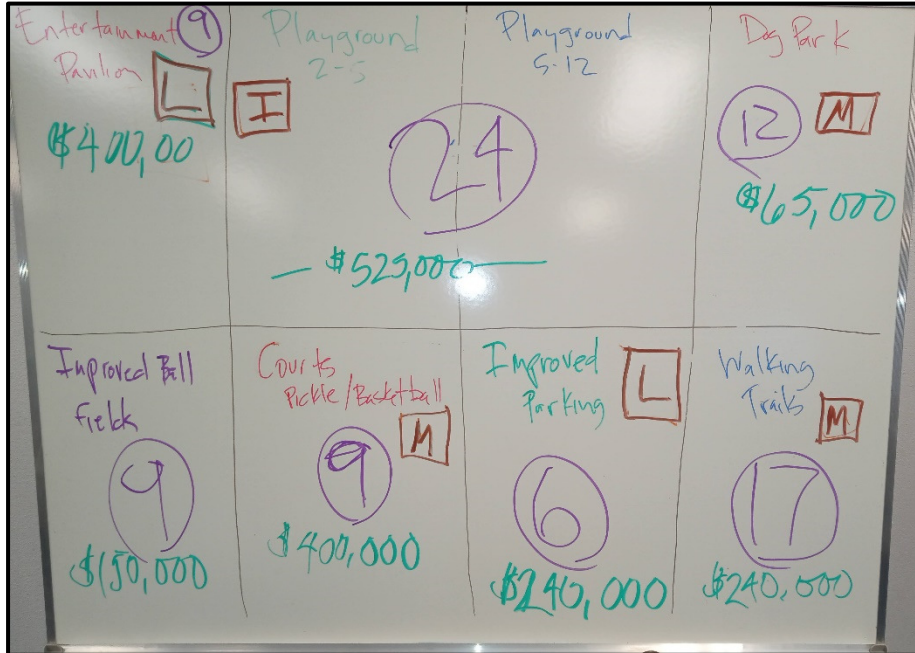 Entertainment 9
Pavilion L
$400,00
Playground
2-5
I
Playground
5-12
24
$525,000
Dog Park
12 M
$65,000
Improved Ball
Fields
9
$150,000
Courts
Pickle/Basketball
M
9
$400,000
Improved
Parking
L
6
$240,000
Walking
Trails
M
17
$240,000